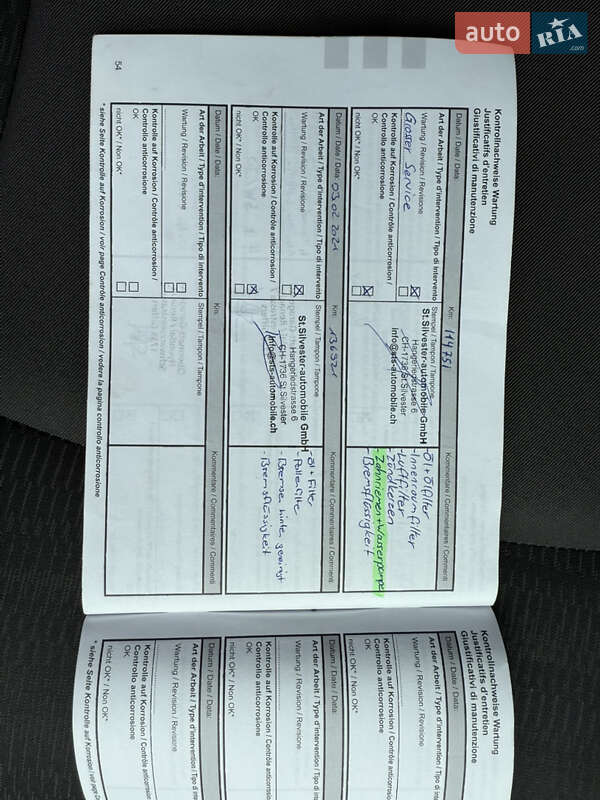 auto
RIA
.com
Kontrollnachweise Wartung
Justificatifs d'entretien
Giustificativi di manutenzione
Datum / Date / Data:
Km:
114751
Kommentare / Commentaires / Commenti
Art der Arbeit / Type d'intervention / Tipo di intervento
Stempel / Tampon / Tampone
Wartung / Revision / Revisione
Grosser Service
St.Silvester-automobile GmbH
Hangerliedstrasse 6
CH-1736 St.Silvester
info@sts-automobile.ch
Kontrolle auf Korrosion / Contrôle anticorrosion /
Controllo anticorrosione
OK
nicht OK* / Non OK*
- Öl + Ölfilter
- Innenraumfilter
- Luftfilter
- Zündkerzen
- Zahnriemen + Wasserpumpe
- Bremsflüssigkeit
Datum / Date / Data:
03.02.2021
Km:
136921
Kommentare / Commentaires / Commenti
Art der Arbeit / Type d'intervention / Tipo di intervento
Stempel / Tampon / Tampone
Wartung / Revision / Revisione
St.Silvester-automobile GmbH
Hangerliedstrasse 6
CH-1736 St.Silvester
info@sts-automobile.ch
Kontrolle auf Korrosion / Contrôle anticorrosion /
Controllo anticorrosione
OK
nicht OK* / Non OK*
- Öl + Filter
- Pollenfilter
- Bremse hinten gereinigt
- Bremsflüssigkeit
Datum / Date / Data:
Km:
Kommentare / Commentaires / Commenti
Art der Arbeit / Type d'intervention / Tipo di intervento
Stempel / Tampon / Tampone
Wartung / Revision / Revisione
Kontrolle auf Korrosion / Contrôle anticorrosion /
Controllo anticorrosione
OK
nicht OK* / Non OK*
* siehe Seite Kontrolle auf Korrosion / voir page Contrôle anticorrosion / vedere la pagina controllo anticorrosione
54
Kontrollnachweise Wartung
Justificatifs d'entretien
Giustificativi di manutenzione
Datum / Date / Data:
Art der Arbeit / Type d'intervention / Tipo
Wartung / Revision / Revisione
Kontrolle auf Korrosion / Contrôle anticorrosion
Controllo anticorrosione
OK
nicht OK* / Non OK*
Datum / Date / Data:
Art der Arbeit / Type d'intervention / Tipo di
Wartung / Revision / Revisione
Kontrolle auf Korrosion / Contrôle anticorrosion
Controllo anticorrosione
OK
nicht OK* / Non OK*
Datum / Date / Data:
Art der Arbeit / Type d'intervention / Tipo di
Wartung / Revision / Revisione
Kontrolle auf Korrosion / Contrôle anticorrosion
Controllo anticorrosione
OK
nicht OK* / Non OK*
* siehe Seite Kontrolle auf Korrosion / voir page